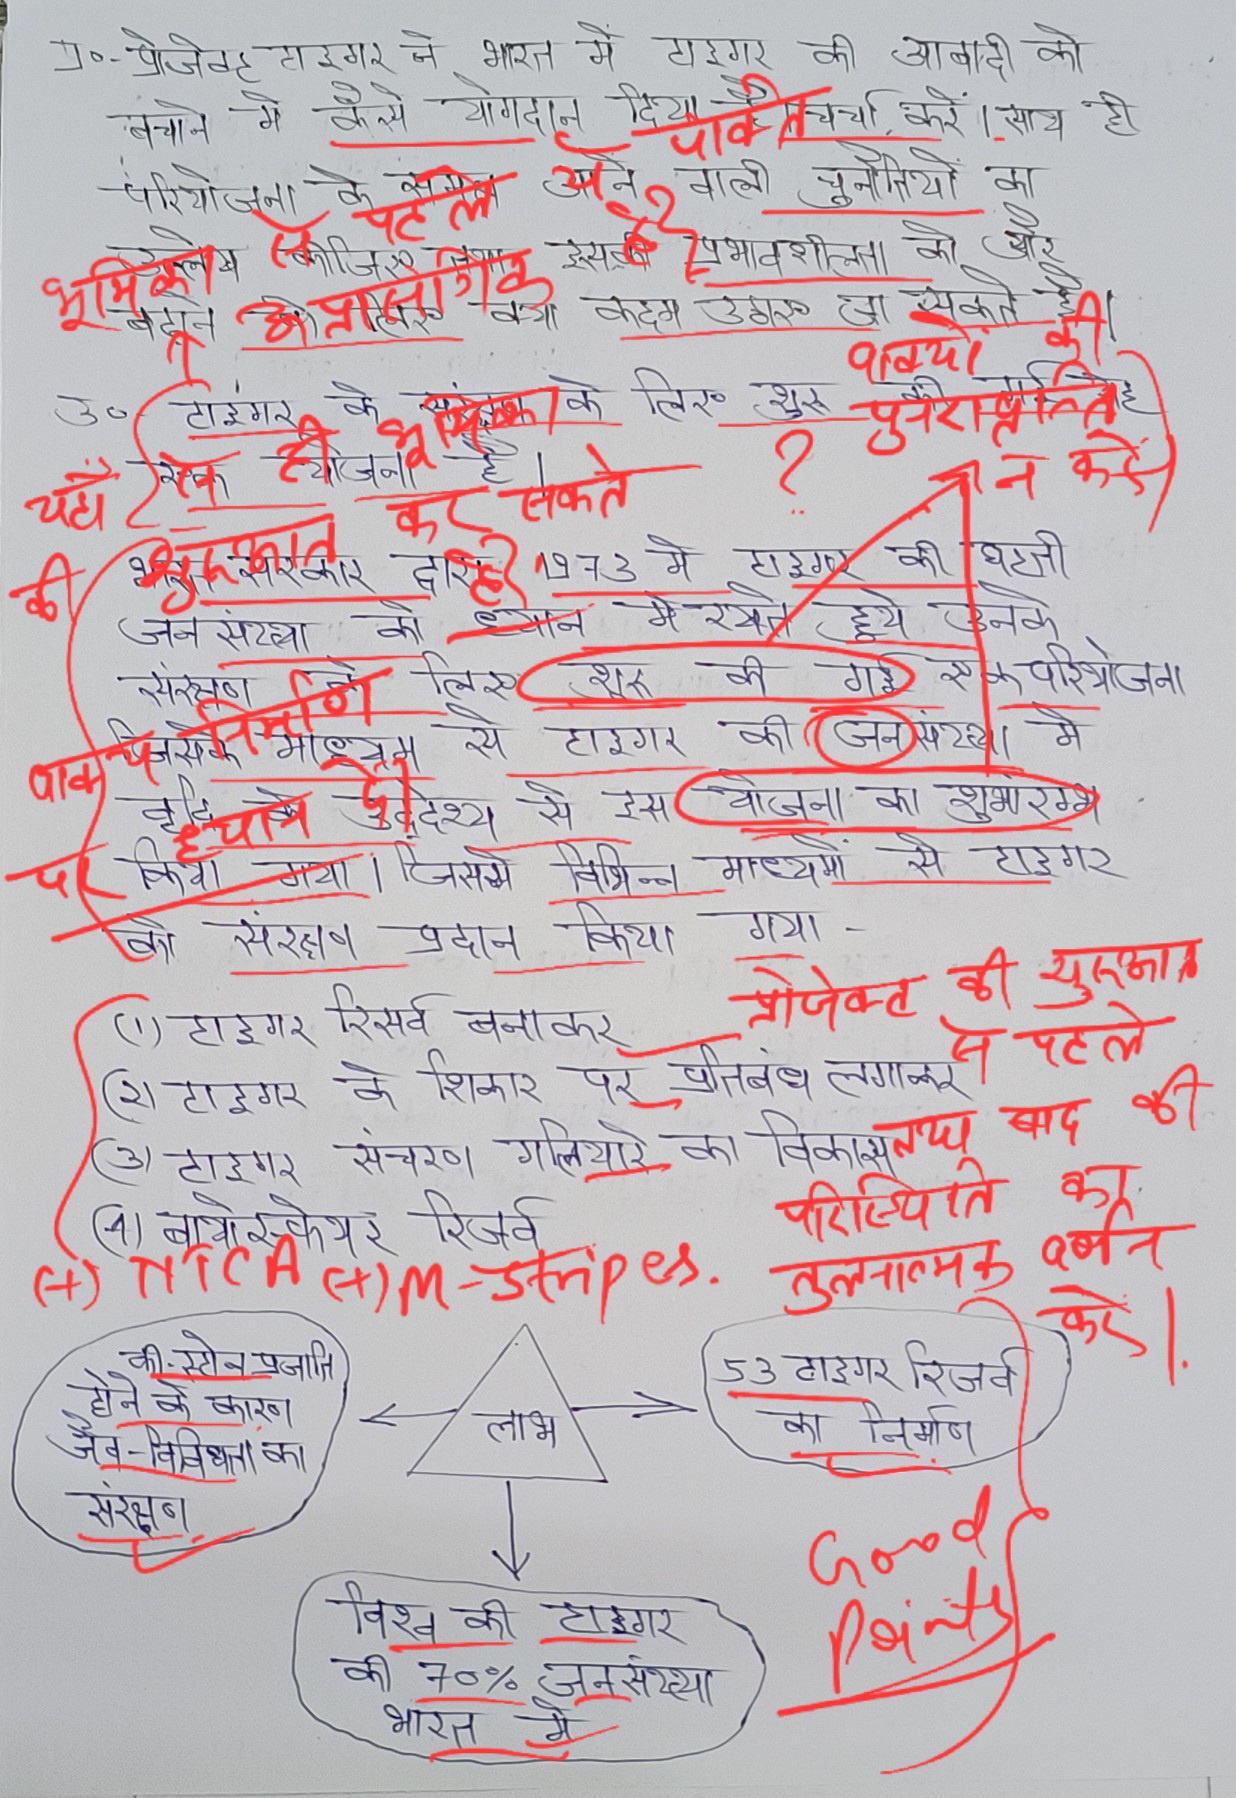 प्र०- प्रोजेक्ट टाइगर ने भारत में टाइगर की आबादी को
बचाने में कैसे योगदान दिया है चर्चा करें। साथ ही
परियोजना के समक्ष आने वाली चुनौतियों का
उल्लेख कीजिए तथा इसकी प्रभावशीलता को और
बढ़ाने के लिए क्या कदम उठाए जा सकते है।
पहले
भूमिका
से
प्राजंगिक
है?
उ०- टाइगर के संरक्षण के लिए शुरू की गई यह
एक योजना है।
वाक्यों की
पुनरावृत्ति
न करें
?
यहाँ
ही भूमिका
की
शुरूआत कर सकते
है?
भारत सरकार द्वारा 1973 में टाइगर की घटती
जनसंख्या को ध्यान में रखते हुये उनके
संरक्षण के लिए शुरू की गई एक परियोजना
जिसके माध्यम से टाइगर की जनसंख्या में
वृद्धि के उद्देश्य से इस योजना का शुभारम्भ
किया गया। जिसमें विभिन्न माध्यमों से टाइगर
को संरक्षण प्रदान किया गया -
वाक्य निर्माण
पर ध्यान दें
(1) टाइगर रिसर्व बनाकर
(2) टाइगर के शिकार पर प्रतिबंध लगाकर
(3) टाइगर संचरण गलियारे का विकास
(4) बायोस्फेयर रिजर्व
(+) NTCA (+) M-Stripes.
प्रोजेक्ट की शुरूआत
से पहले
तथा बाद की
परिस्थिति का
तुलनात्मक वर्णन
करें।
की-स्टोन प्रजाति
होने के कारण
जैव-विविधता का
संरक्षण
लाभ
53 टाइगर रिजर्व
का निर्माण
विश्व की टाइगर
की 70% जनसंख्या
भारत में
Good
Points